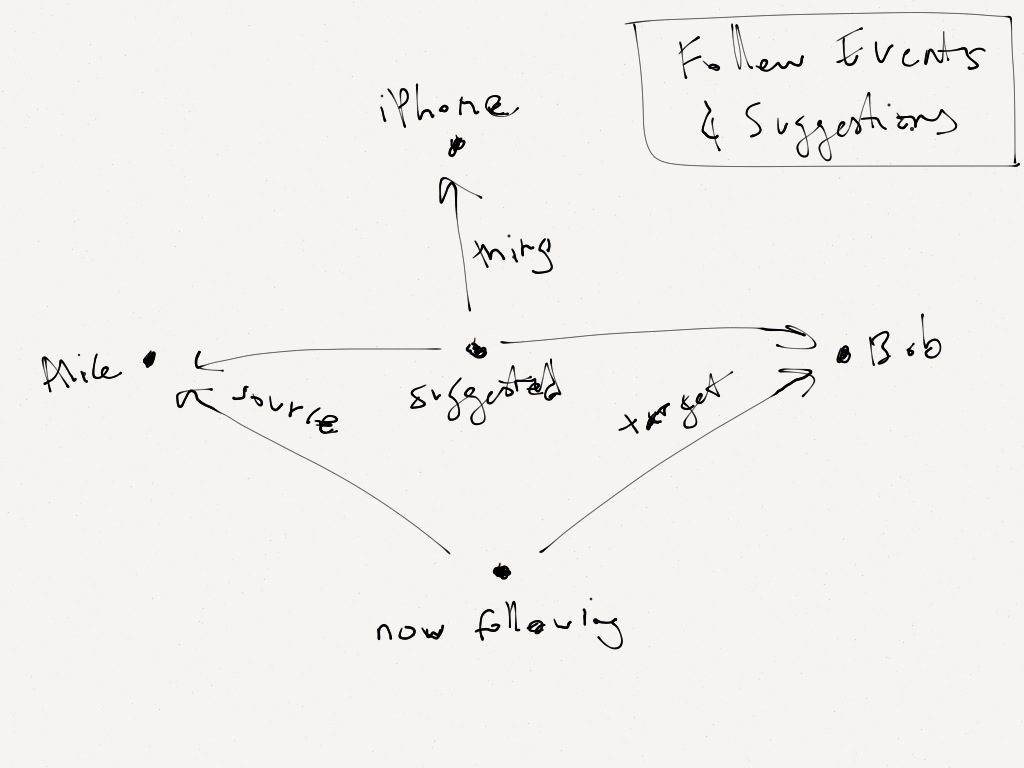 Follow Events
& Suggestions
iPhone
thing
Bob
suggested
source
target
now following